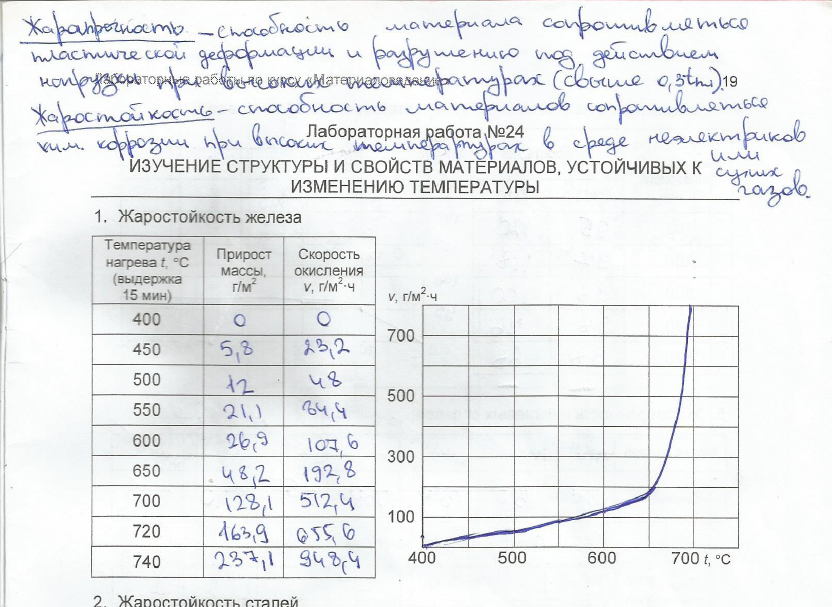 Жаропрочность – способность материала сопротивляться
пластической деформации и разрушению под действием
нагрузки при высоких температурах (свыше 0,3tпл)
Лабораторные работы по курсу «Материаловедение» 19
Жаростойкость – способность материалов сопротивляться
хим. коррозии при высоких температурах в среде неэлектриков
или
сухих
газов.
Лабораторная работа №24
ИЗУЧЕНИЕ СТРУКТУРЫ И СВОЙСТВ МАТЕРИАЛОВ, УСТОЙЧИВЫХ К
ИЗМЕНЕНИЮ ТЕМПЕРАТУРЫ
1. Жаростойкость железа
Температура нагрева t, °С (выдержка 15 мин) Прирост массы, г/м² Скорость окисления v, г/м²·ч
400 0 0
450 5,8 23,2
500 12 48
550 21,1 84,4
600 26,9 107,6
650 48,2 192,8
700 128,1 512,4
720 163,9 655,6
740 237,1 948,4
v, г/м²·ч
700
500
300
100
400 500 600 700 t, °С
2. Жаростойкость сталей